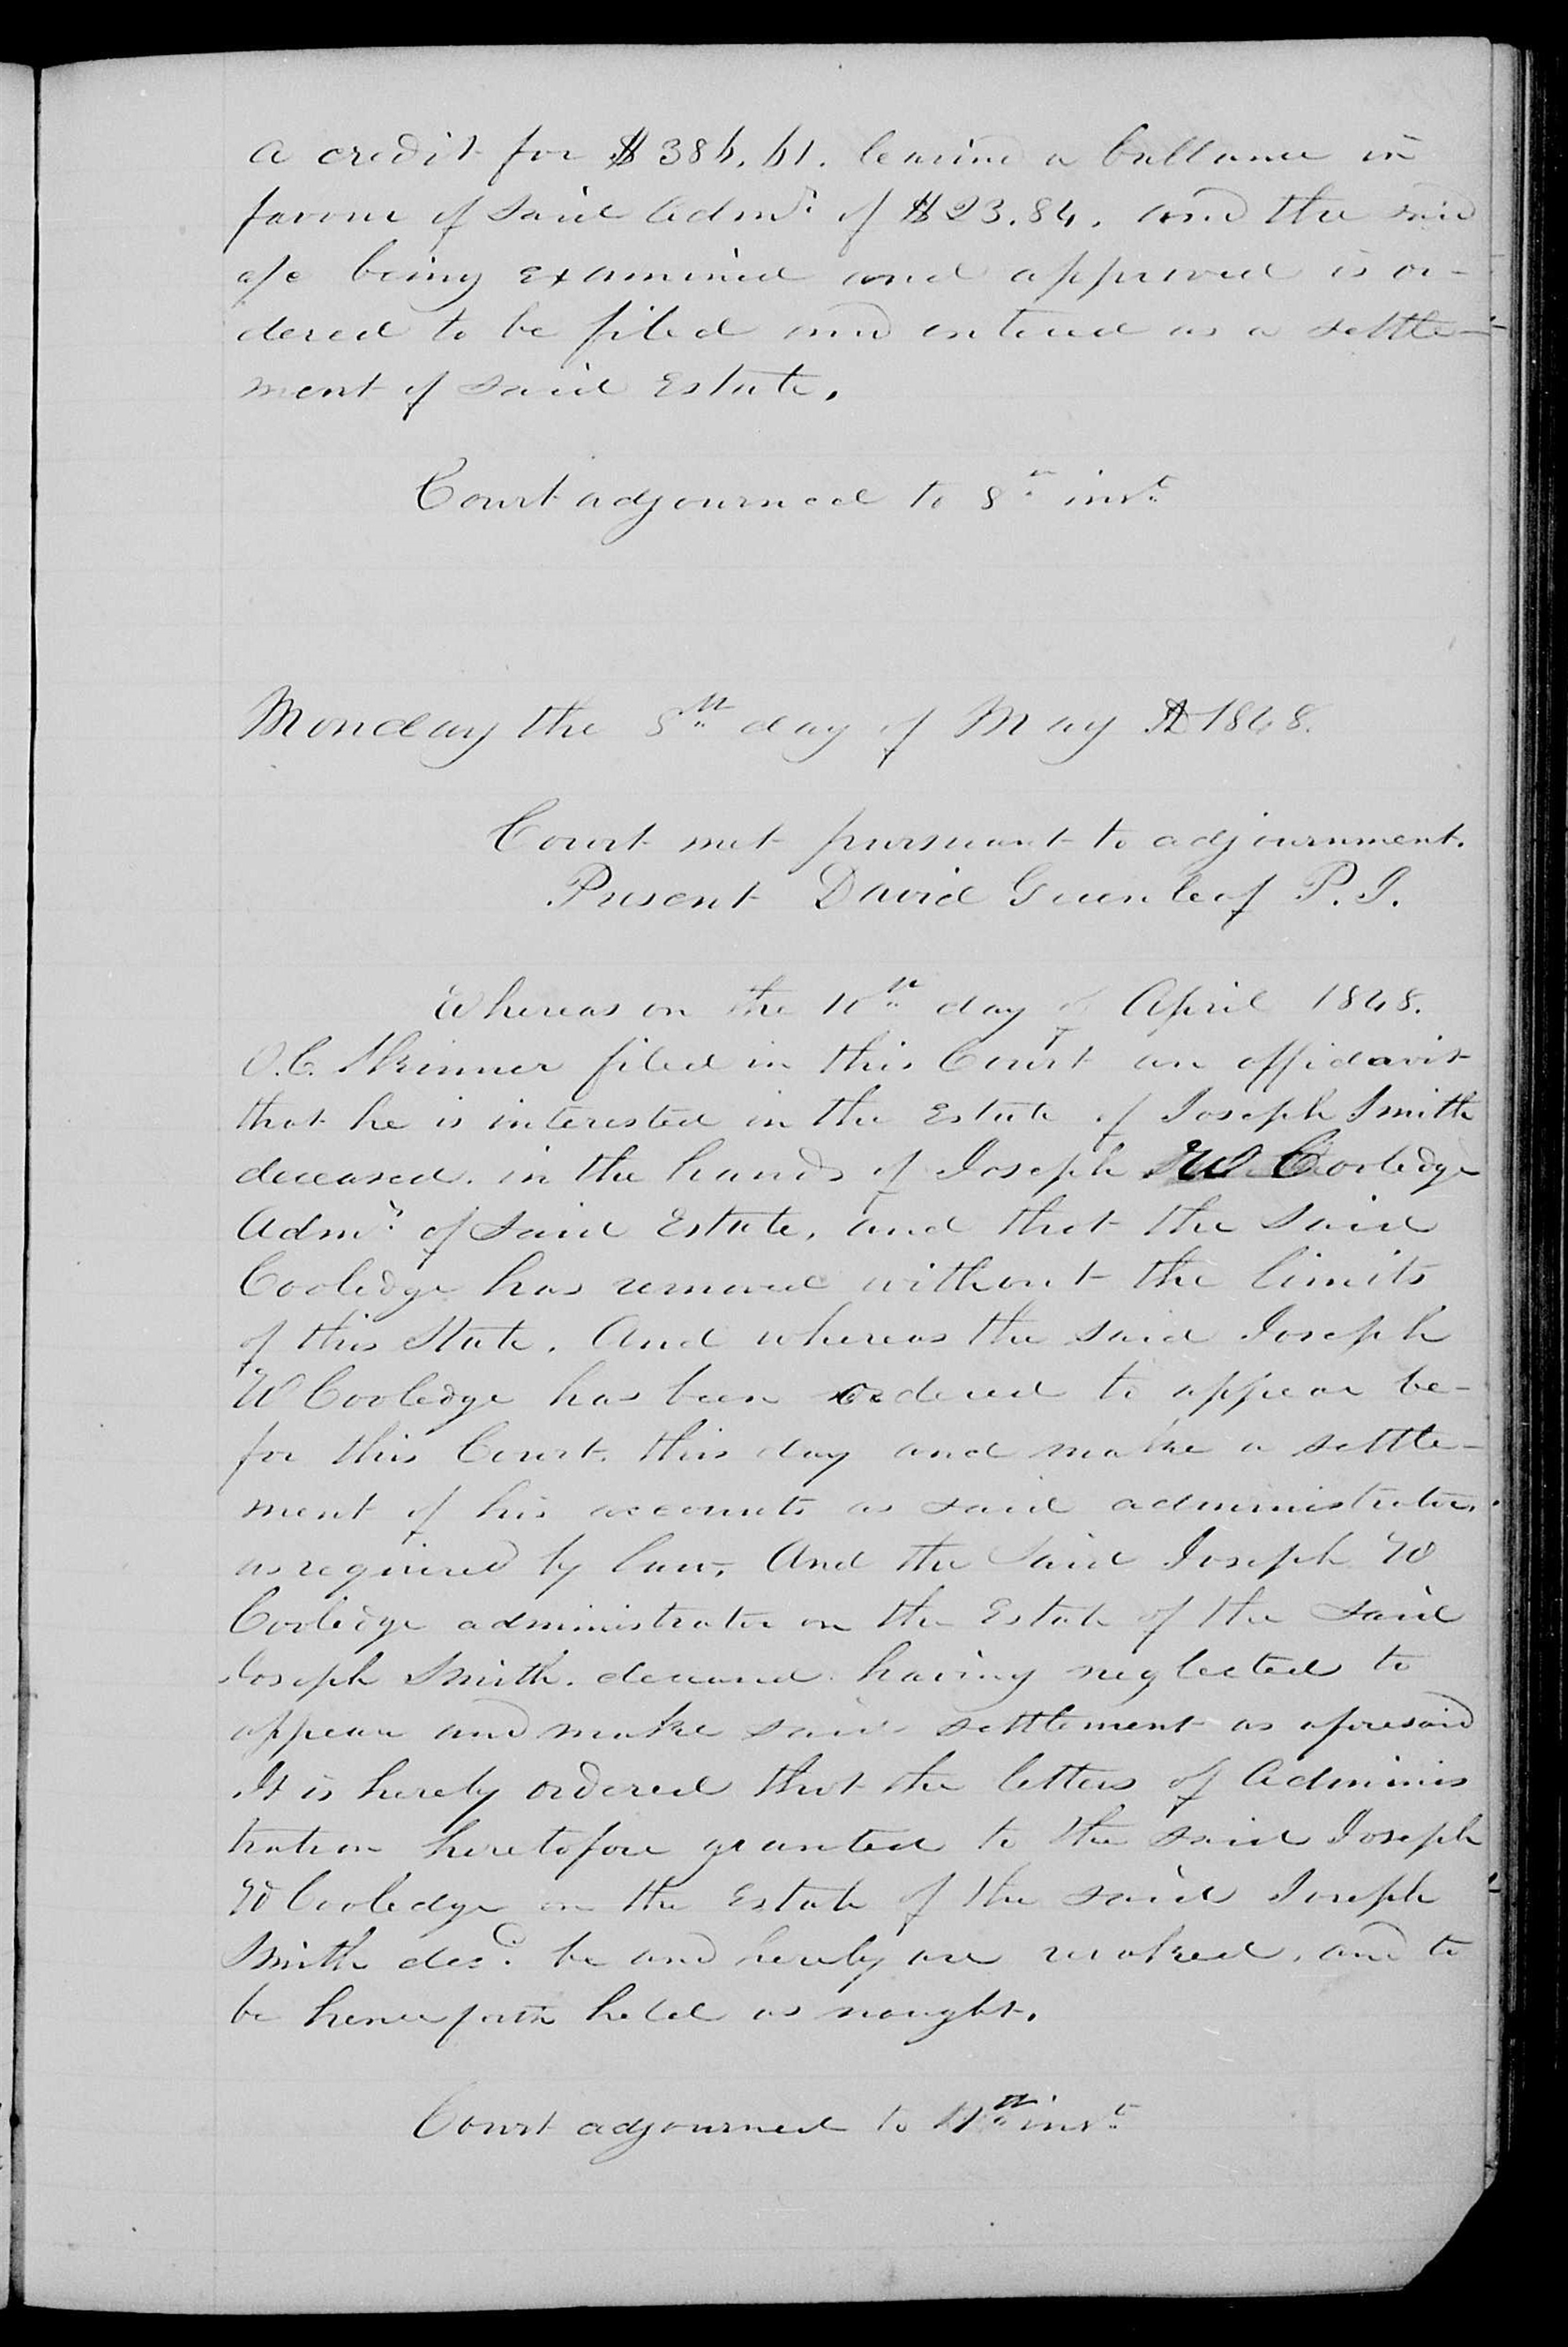 a credit for $386.61. leaving a ballance in
favour of said Adm.r of $23.84. and the said
a/c being examined and approved is or-
dered to be filed and entered as a settle-
ment of said Estate.
Court adjourned to 8th inst
Monday the 8th day of May AD 1848.
Court met pursuant to adjournment.
Present David Greenleaf P. J.
Whereas on the 10th day of April 1848.
O.C. Skinner filed in this Court an affidavit
that he is interested in the Estate of Joseph Smith
deceased. in the hands of Joseph W Coolidge
Admr of said Estate, and that the said
Coolidge has removed without the limits
of this State. And whereas the said Joseph
W Coolidge has been ordered to appear be-
for this Court. this day and make a settle-
ment of his accounts as said administrator.
as required by law, And the said Joseph W
Coolidge administrator on the Estate of the said
Joseph Smith. deceased. having neglected to
appear and make said settlement as aforesaid
It is hereby ordered that the letters of Adminis
tration heretofore granted to the said Joseph
W Cooledge on the Estate of the said Joseph
Smith decd. be and hereby are revoked, and to
be henceforth held as nought.
Court adjourned to 11th inst